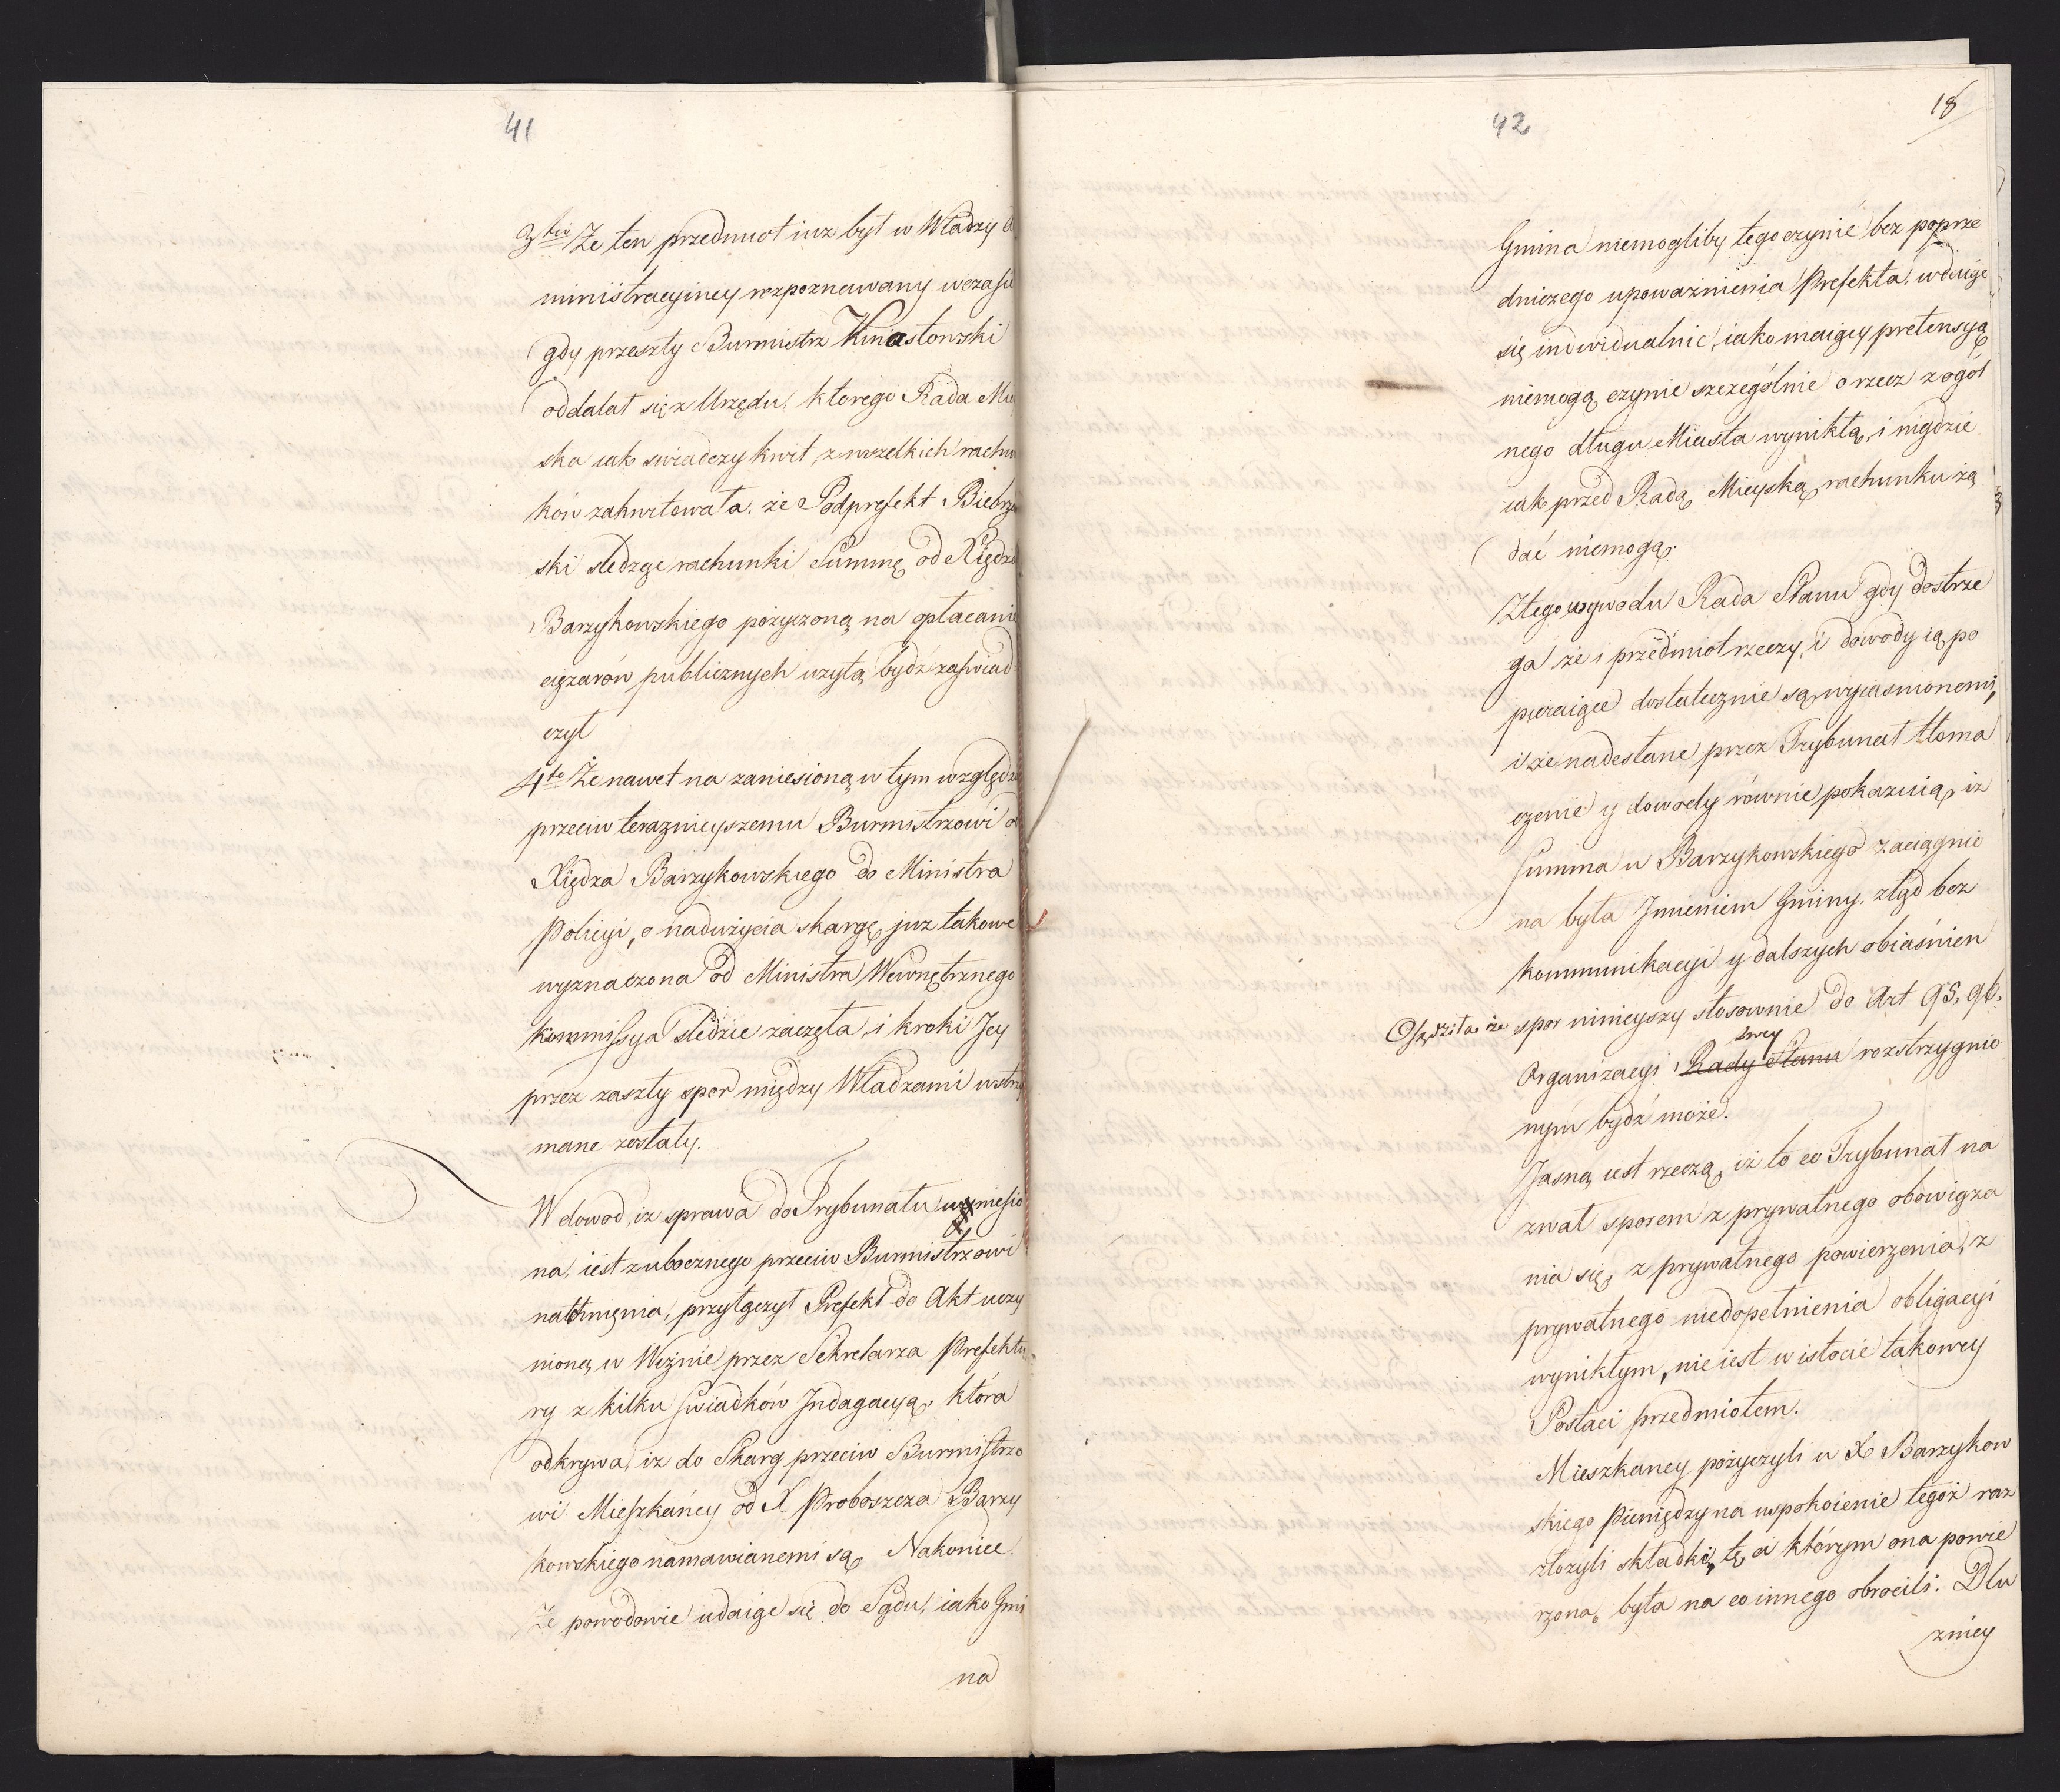 41
3tio Że ten przedmiot iuz był w Władzy A
ministracyiney rozpoznawany wczasie
gdy przeszły Burmistrz Kinastowski
oddalał się z Urzędu, ktorego Rada Mie
ska iak swiadczy kwit, z wszelkich rachun
ków zakwitowała. że Podprefekt Biebrzy
ski sledząc rachunki Summę od Xiędza
Barzykowskiego pożyczoną na opłacanie
cięzarów publicznych uzytą bydź zaświad
czył
4to Że nawet na zaniesioną w tym względzie
przeciw teraznieyszemu Burmistrzowi od
Xiędza Barzykowskiego do Ministra
Policyi, o nadużycia skargę, juz takowe
wyznaczona od Ministra Wewnętrznego
kommissya sledzie zaczęła, i kroki Jey
przez zaszły spor między Władzami wstrzy
mane zostały.
W dowod, iz sprawa do Trybunału wyniesio
na, iest z ubocznego przeciw Burmistrzowi
natchnięnia, przyłączył Prefekt do Akt uczy
nioną w Wiznie przez Sekretarza Prefektu
ry z kilku swiadków Indagacyą, która
odkrywa, iz do Skarg przeciw Burmistrzo
wi Mieszkańcy od X Proboszcza Barzy
kowskiego namawianemi są, Nakoniec
Że powodowie udaiąc się do Sądu, iako Gmi
na
42
18
Gmina niemogliby tego czynić bez poprze
dniczego upoważnienia Prefekta, wdaiąc
się individualnie, iako maiący pretensyą
niemogą czynie szczególnie o rzecz z ogól
nego długu Miasta wynikłą, i nigdzie
iak przed Radą Mieyską rachunku żą
dać niemogą.
Z tego wywodu Rada Stanu gdy dostrze
ga że i przedmiot rzeczy, i dowody ią po
pieraiące dostatecznie są wyiasnionemi,
i że nadesłane przez Trybunał tłoma
czenie y dowody równie pokazuią, iz
Summa u Barzykowskiego zaciągnio
na była Imieniem Gminy, ztąd bez
kommunikacyi y dalszych obiaśnien
Osądziła że spor ninieyszy stosownie do Art 95, 96,
swey
Organizacyi Rady Stanu rozstrzygnio
nym bydź może.
Jasną iest rzeczą, iż to co Trybunał na
zwał sporem z prywatnego obowiąza
nia się, z prywatnego powierzenia, z
prywatnego niedopełnienia obligacyi
wynikłym, nie iest w istocie takowey
Postaci przedmiotem.
Mieszkancy pożyczyli u X Barzykow
skiego Pieniędzy na uspokoienie tegóż raz
złozyli składkę, tę ci którym ona powie
rzona, była na co innego obrocili. Dlu
zniey